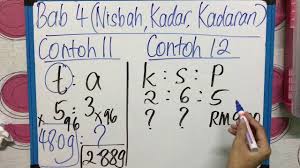 Bab 4 (Nisbah, Kadar, Kadaran)
Contoh 11
t : a
5 : 3
×96 ×96
480g : ?
288g
Contoh 12
k : s : P
2 : 6 : 5
? ? RM